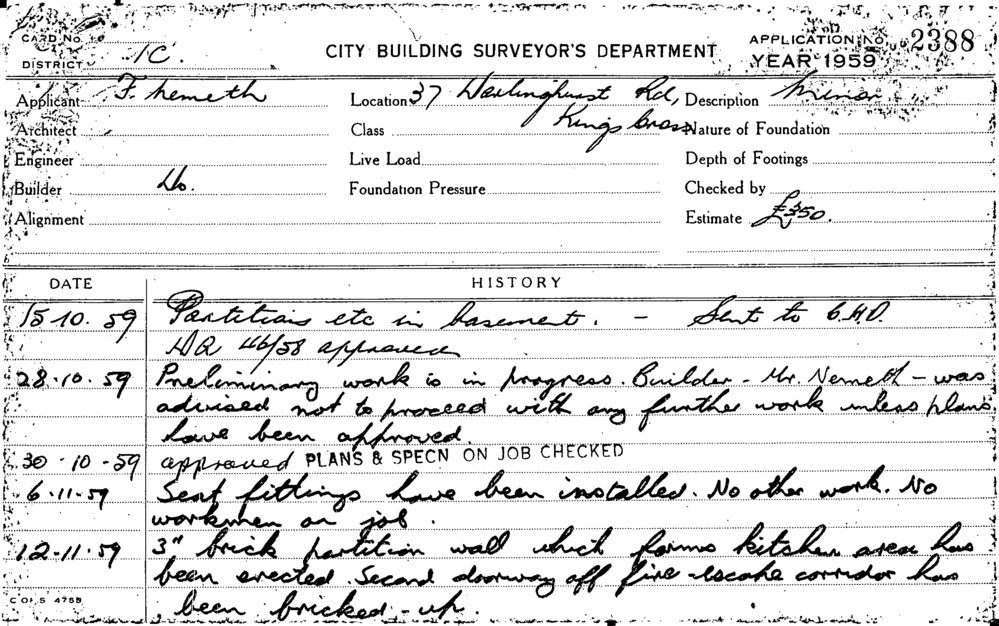 CARD No.
DISTRICT 1C.
CITY BUILDING SURVEYOR'S DEPARTMENT
APPLICATION No. 2388
YEAR 1959
Applicant F. Nemeth Location 37 Darlinghurst Rd, Description Minor
Kings Cross
Architect Class Nature of Foundation
Engineer Live Load Depth of Footings
Builder Do. Foundation Pressure Checked by
Alignment Estimate £350.
DATE HISTORY
15-10.59 Partitions etc in basement. - Sent to C.H.O.
DA 46/58 approved
28.10.59 Preliminary work is in progress. Builder - Mr. Nemeth - was
advised not to proceed with any further work unless plans
have been approved.
30-10-59 approved PLANS & SPECN ON JOB CHECKED
6.11.59 Seat fittings have been installed. No other work. No
workmen on job.
12.11.59 3" brick partition wall which forms kitchen area has
been erected. Second doorway off fire-escape corridor has
been bricked-up.
COI S 4758